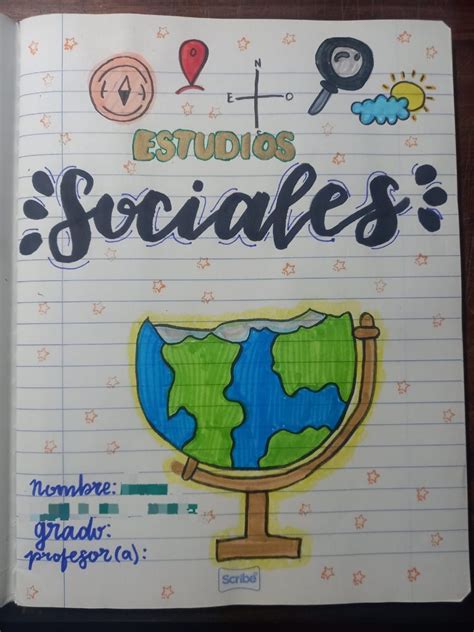 N
E O
S
ESTUDIOS
Sociales
nombre:
grado:
profesor(a):
Scribe